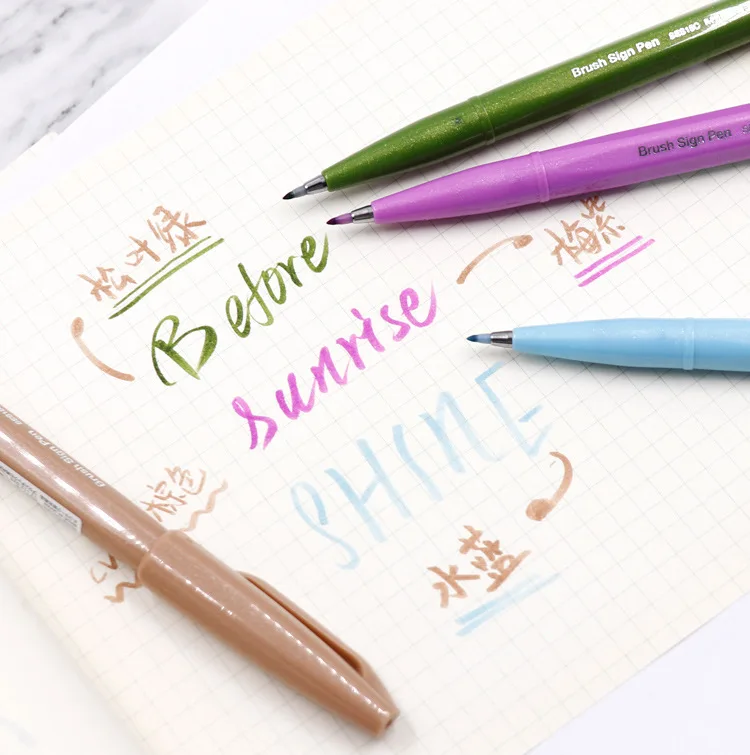 Brush Sign Pen SES15C
Brush Sign Pen
松叶绿
梅紫
Before
sunrise
SHINE
Brush Sign Pen
棕色
水蓝